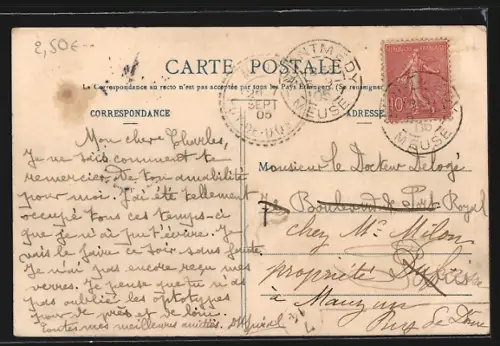 2,50€
CARTE POSTALE
La Correspondance au recto n'est pas acceptée par tous les Pays Étrangers. (Se renseigner
CORRESPONDANCE
ADRESSE
MONTMÉDY
MEUSE
SEPT
05
10
MEUSE
Mon cher Charles,
Je ne sais comment te
remercier de ton amabilité
pour moi. J'ai été tellement
occupé tous ces temps-ci
que je n'ai pu t'écrire. Je
vais le faire ce soir sans faute.
Je n'ai pas encore reçu mes
verres. Je pense que tu n'as
pas oublié les optotypes
pour de près et de loin.
Toutes mes meilleures amitiés.
Monsieur le Docteur Delogé
Boulevard de Port Royal
chez Mr Milon
propriétaire
à Mauzun
Puy de Dôme